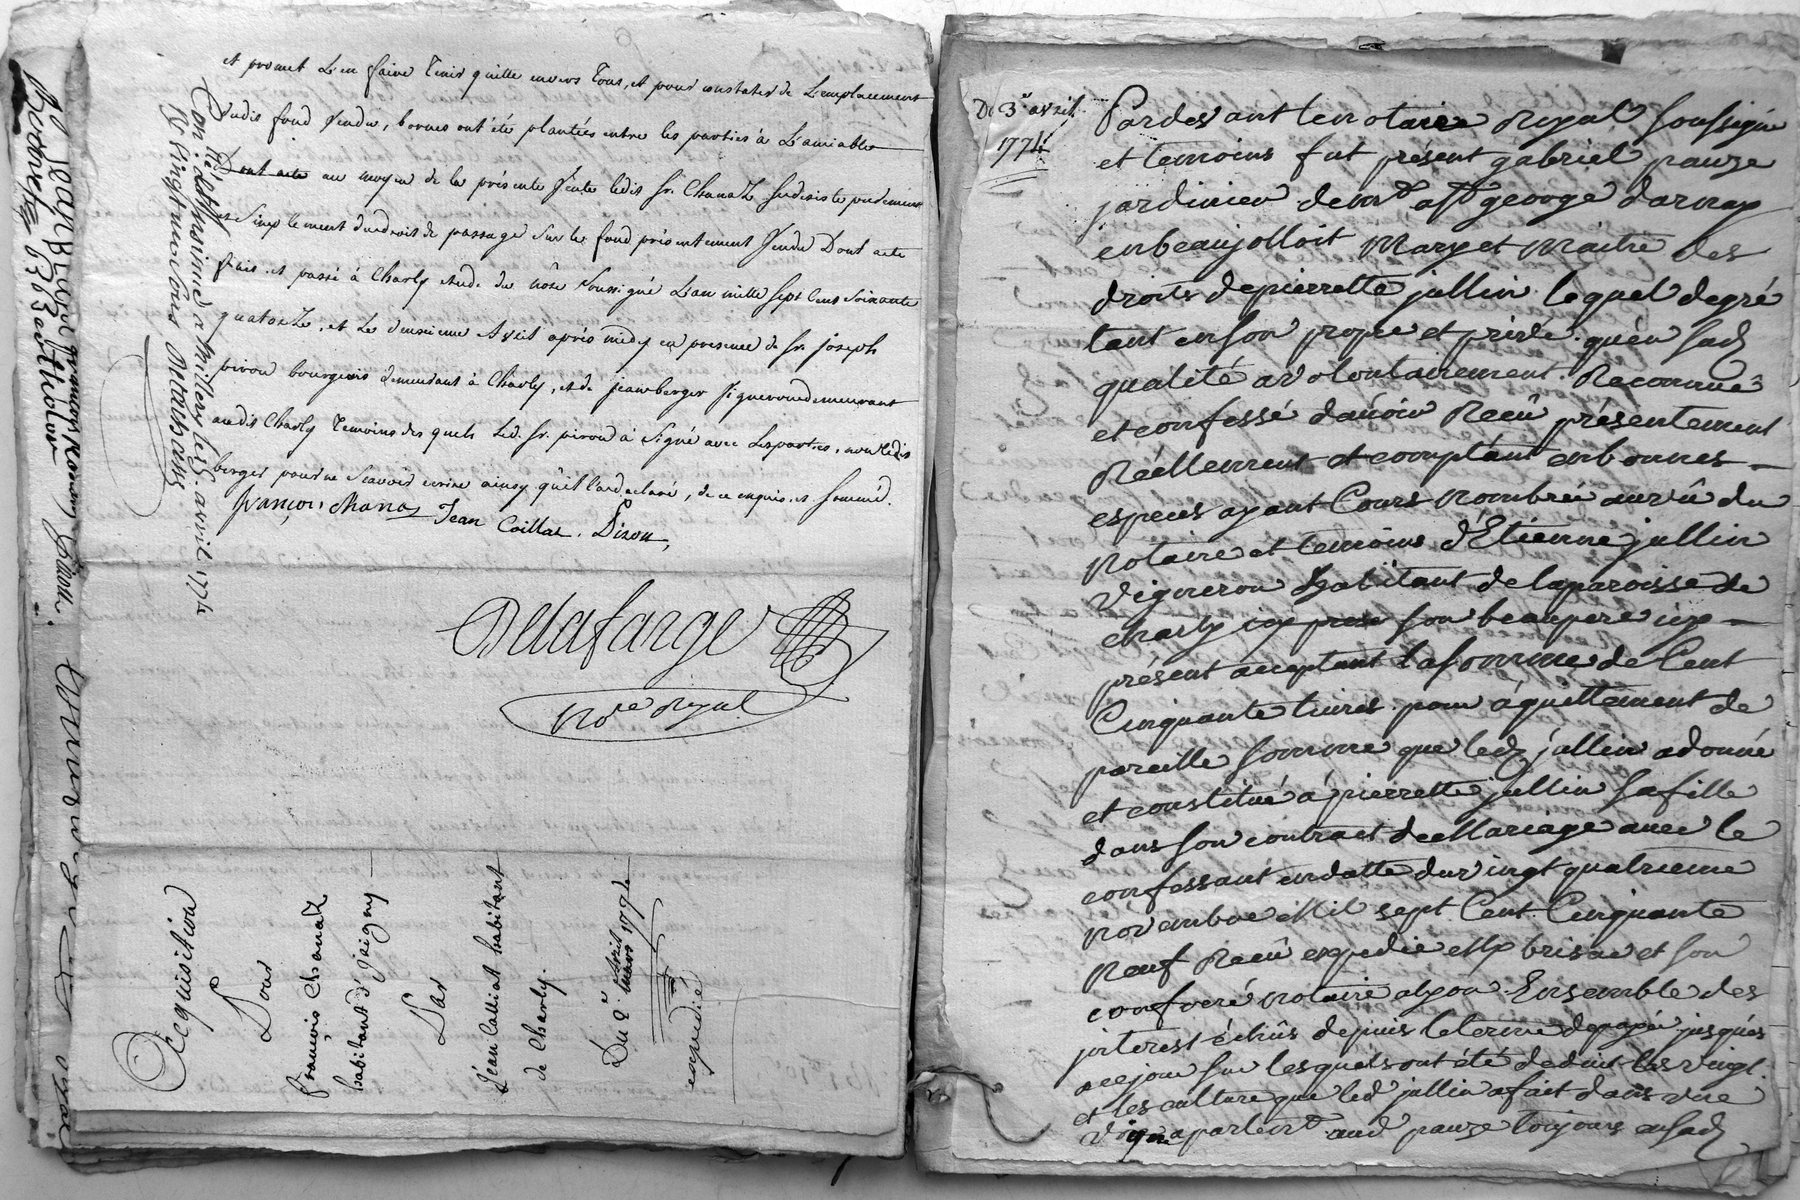 et promet L'en faire Tenir quitte envers Tous, et pour constater de L'emplacement
Dudit fond Vendu, bornes ont été plantées entre les parties à L'amiable
Dont acte au moyen de la présente Vente ledit Sr. Chanaz se désiste purement
et Simplement du droit de passage Sur le fond présentement Vendu Dont acte
fait et passé à Charly étude du nore Soussigné L'an mille Sept Cent Soixante
quatorze, et Le deuxieme Avril après midy en presence de Sr. joseph
pirou bourgeois demeurant à Charly, et de jean berger Vigneron demeurant
audit Charly Temoins desquels Led. Sr. pirou à Signé avec Les parties, non Ledit
berger pour ne Scavoir ecrire ainsy qu'il l'a declaré, de ce enquis et Sommé.
françois chanaz Jean Caillat. Pirou,
Delafarge
Nore Royal
Con
et insinué a Millery le avril 1774
Acquisition
Pour
françois Chanaz
habitant d'jrigny
Par
Jean Calliat habitant
de Charly.
Du 2e avril 1774
expedié
Du 3e avril
1774
Pardevant le notaire Royal Soussigné
et temoins fut présent gabriel pauze
jardinier
en beaujollois Mary et Maitre des
droits de pierrette jullin lequel de gré
tant en son propre et privé qu'en sad
qualité a volontairement Reconnu
et confessé d'auoir Receû présentement
Réellement et comptant en bonnes
especes ayant Cours Nombrée au vû du
Notaire et temoins d'Etienne jullin
Vigneron habitant de la paroisse de
charly son beaupere icy
présent acceptant la somme de Cent
Cinquante livres pour aquittement de
pareille somme que led jullin a donné
et constitué a pierrette jullin sa fille
dans son contract de Mariage avec le
confessant en datte du vingt quatrieme
novembre Mil sept Cent Cinquante
Neuf Receû expedié Me brisac et son
confreré notaire a lyon Ensemble des
jnterest échûs depuis le terme de payé jusques
a ce jour sur lesquels ont été deduit les
et les culture que led jullin a fait dans une
vigne apartent aud pauze toujours en sad